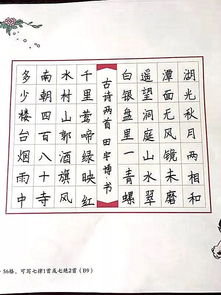 湖光秋月两相和
潭面无风镜未磨
遥望洞庭山水翠
白银盘里一青螺
古诗两首 田宇博·书
千里莺啼绿映红
水村山郭酒旗风
南朝四百八十寺
多少楼台烟雨中
·56格，可写七律1首或七绝2首（B9）